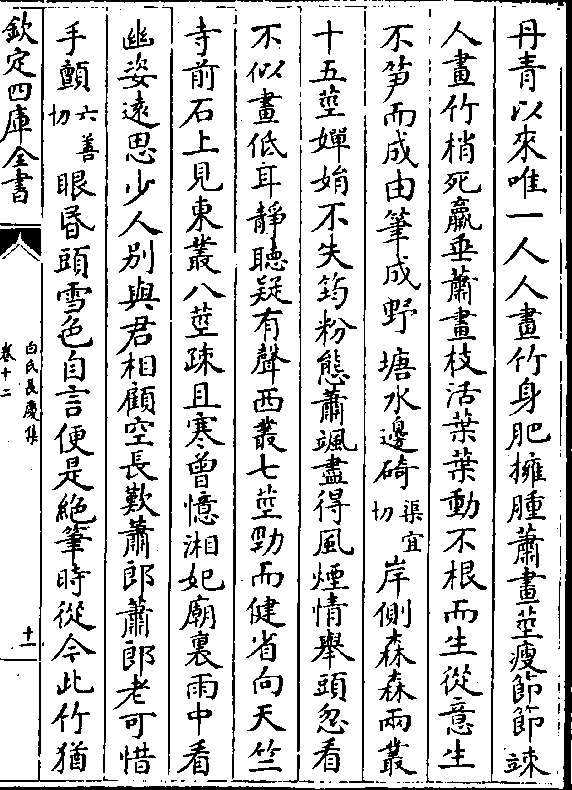 丹青以來唯一人人畫竹身肥擁腫蕭畫莖瘦節節竦
人畫竹梢死羸垂蕭畫枝活葉葉動不根而生從意生
不笋而成由筆成野塘水邊碕渠宜切岸側森森兩叢
十五莖嬋娟不失筠粉態蕭颯盡得風煙情舉頭忽看
不似畫低耳靜聽疑有聲西叢七莖勁而健省向天竺
寺前石上見東叢八莖疎且寒曾憶湘妃廟裏雨中看
幽姿遠思少人别與君相顧空長歎蕭郎蕭郎老可惜
手顫六善切眼昬頭雪色自言便是絶筆時從今此竹猶
欽定四庫全書
白氏長慶集
卷十二
十一